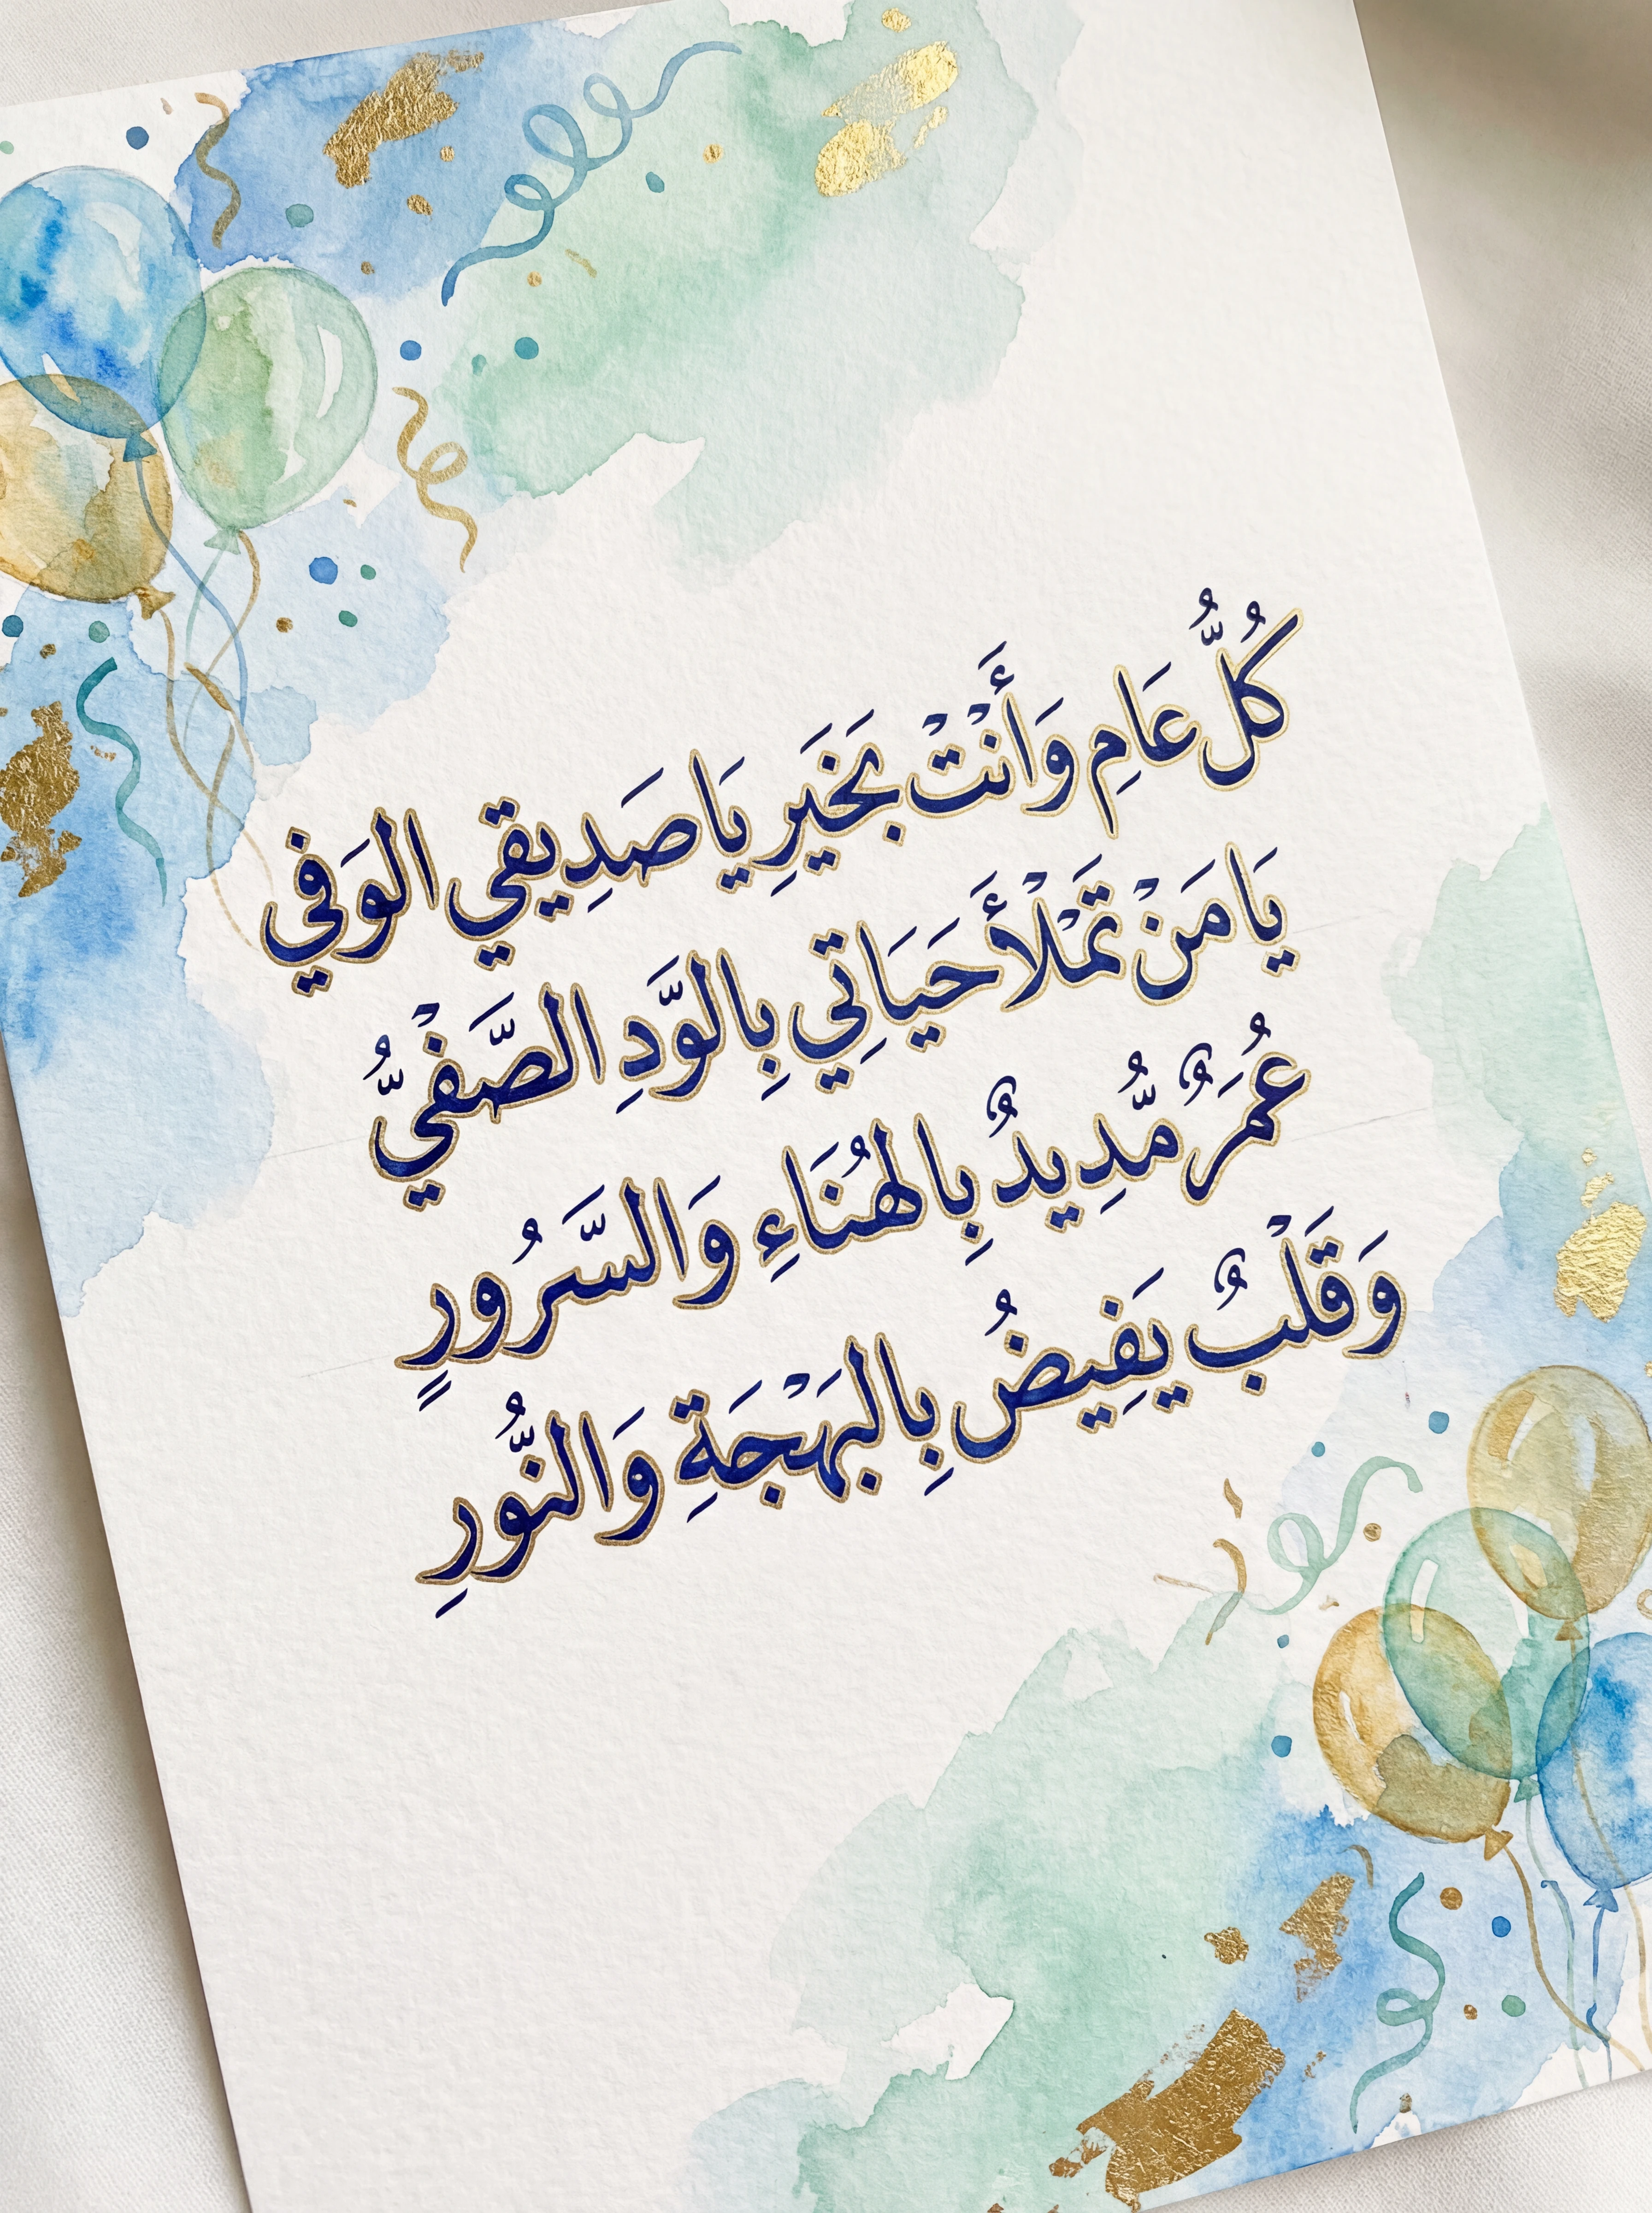 كُلُّ عَامِ وَأَنْتْ بَخَيَرِ يَا صَدِيقي الوَفي
يَا مَنْ تَمْلْأَ حَيَاتِي بِالوَّدِ الصَّفْيُّ
عُمَرٌ مُّدِيدٌ بِالهُنَاءِ وَالسَّرُورٍ
وَقَلْبٌ يَفِيضُ بِالبَهْجَةِ وَالنُّورِ